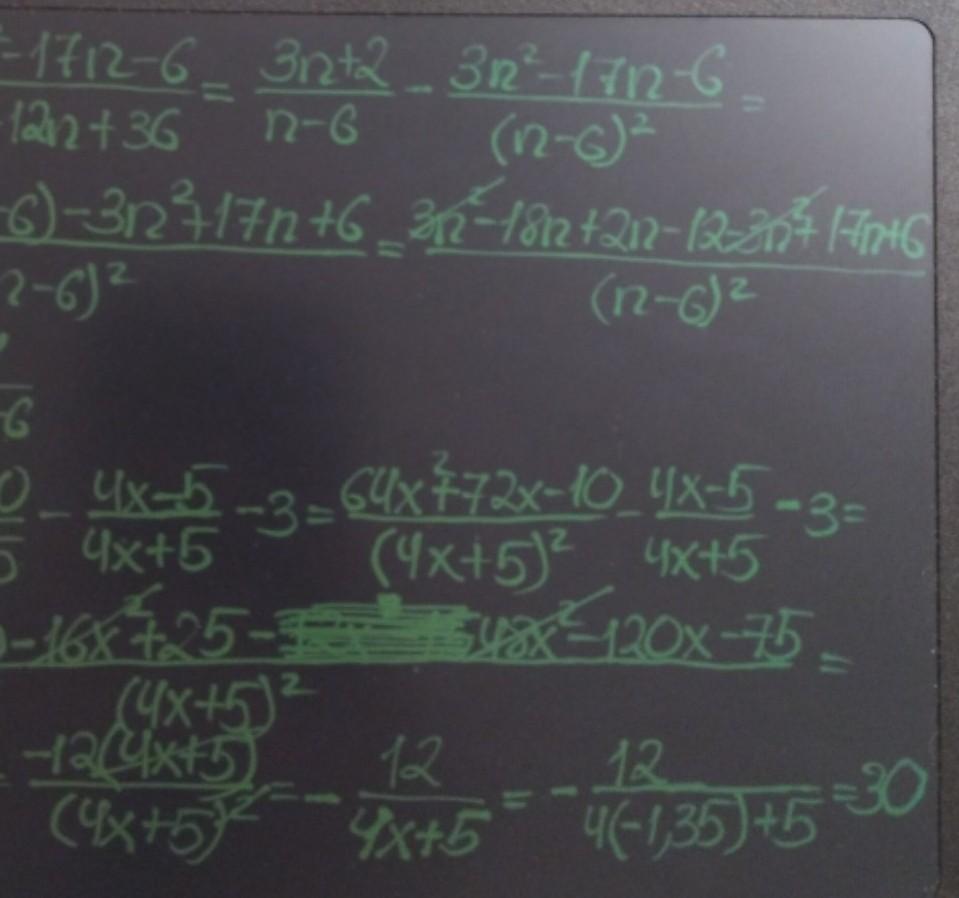 -17n-6/12n+36 = 3n+2/n-6 - 3n²-17n-6/(n-6)² =
-6)-3n²+17n+6/n-6)² = 3n²-18n+2n-12-3n²+17n+6/(n-6)²
-6
0/5 - 4x-5/4x+5 -3 = 64x²+72x-10/(4x+5)² - 4x-5/4x+5 -3 =
-16x²+25- 48x²-120x-75/(4x+5)² =
-12(4x+5)/(4x+5)² = - 12/4x+5 = - 12/4(-1,35)+5 = 30